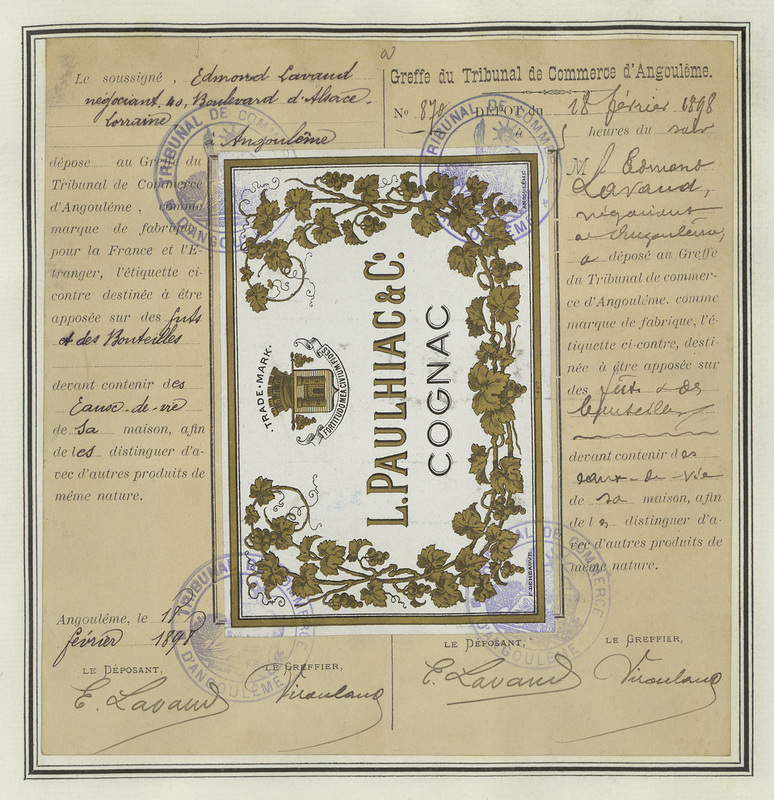 Le soussigné, Edmond Lavaud
négociant, 40, Boulevard d'Alsace-
Lorraine
à Angoulême
dépose au Greffe du
Tribunal de Commerce
d'Angoulême, comme
marque de fabrique
pour la France et l'É-
tranger, l'étiquette ci-
contre destinée à être
apposée sur des futs
et des Bouteilles
devant contenir des
Eaux-de-vie
de sa maison, afin
de les distinguer d'a-
vec d'autres produits de
même nature.
Angoulême, le 18
février 1898
LE DÉPOSANT, LE GREFFIER,
E. Lavaud
L. PAULHIAC & Co.
COGNAC
·TRADE·MARK·
FORTITUDO MEA CIVIUM FIDES
ANGOULÊME
Greffe du Tribunal de Commerce d'Angoulême.
No 870 DÉPÔT du 18 février 1898
à 5 heures du soir
M Edmond
Lavaud,
négociant
à Angoulême,
a déposé au Greffe
du Tribunal de commer-
ce d'Angoulême, comme
marque de fabrique, l'é-
tiquette ci-contre, desti-
née à être apposée sur
des futs & des
bouteilles
devant contenir des
eaux-de-vie
de sa maison, afin
de les distinguer d'a-
vec d'autres produits de
même nature.
LE DÉPOSANT, LE GREFFIER,
E. Lavaud
TRIBUNAL DE COMMERCE
D'ANGOULÊME
TRIBUNAL DE COMMERCE
D'ANGOULÊME
TRIBUNAL DE COMMERCE
D'ANGOULÊME
TRIBUNAL DE COMMERCE
D'ANGOULÊME